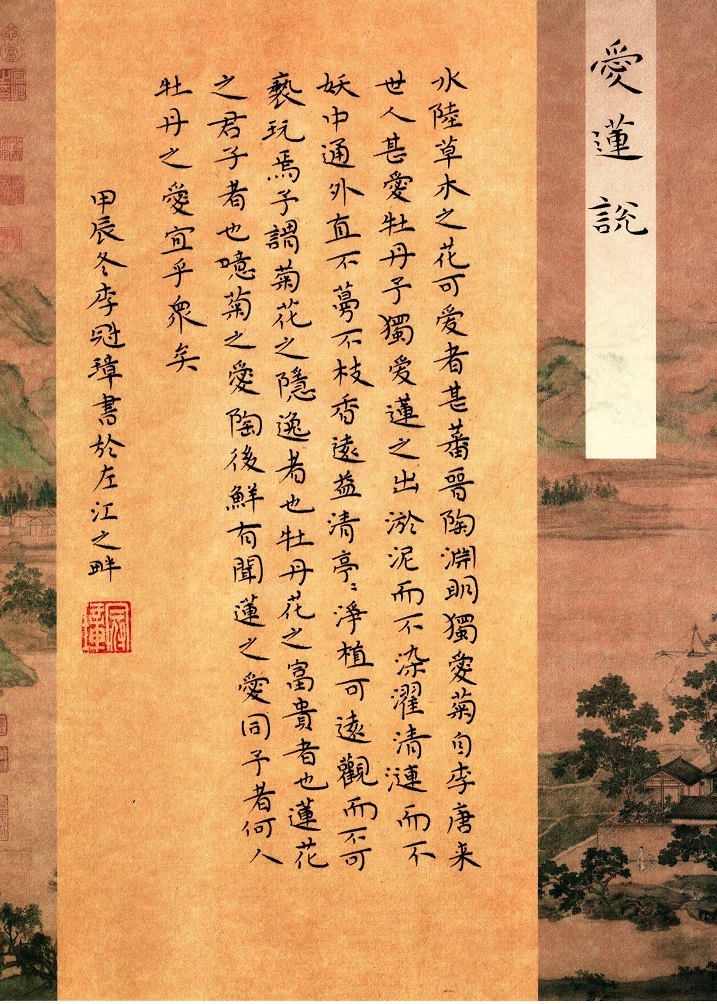 愛蓮説
水陸草木之花可爱者甚蕃晉陶淵明獨愛菊自李唐来
世人甚愛牡丹予獨爱蓮之出淤泥而不染濯清漣而不
妖中通外直不蔓不枝香遠益清亭〻淨植可遠觀而不可
褻玩焉予謂菊花之隱逸者也牡丹花之富貴者也蓮花
之君子者也噫菊之愛陶後鮮有聞蓮之愛同予者何人
牡丹之愛宜乎衆矣
甲辰冬李冠璋書於左江之畔